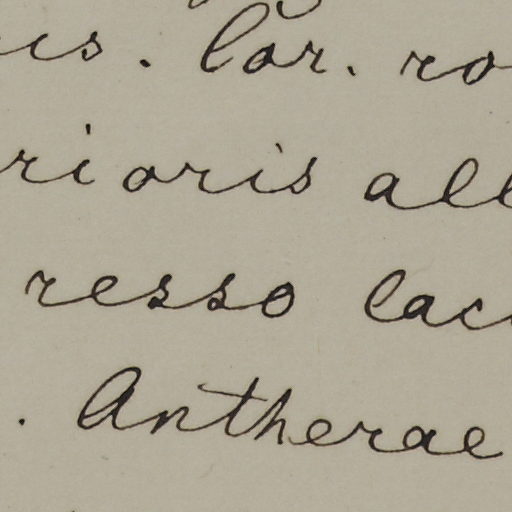 is. Cor. ro
rioris all
resso laci
. Antherae